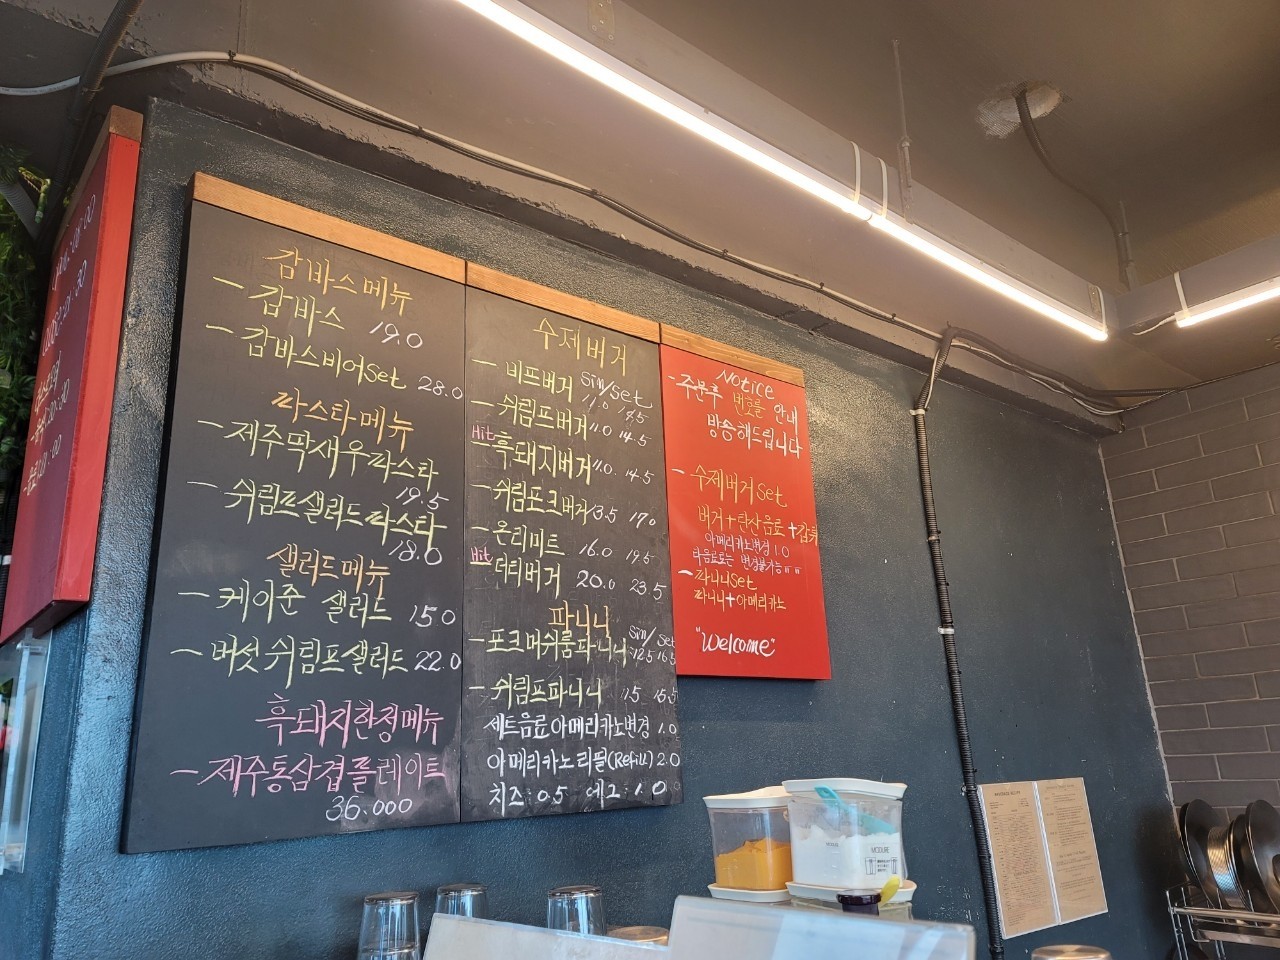 감바스메뉴
- 감바스 19.0
- 감바스비어set 28.0
파스타메뉴
- 제주딱새우파스타
19.5
- 쉬림프샐러드파스타
18.0
샐러드메뉴
- 케이준 샐러드 15.0
- 버섯쉬림프샐러드 22.0
흑돼지한정메뉴
- 제주통삼겹플레이트
36.000
수제버거
Sin/Set
- 비프버거
- 쉬림프버거 11.0 14.5
Hit
- 흑돼지버거 11.0. 14.5
- 쉬림포크버거 13.5 17.0
- 온리미트 16.0 19.5
Hit
- 더티버거 20.0 23.5
파니니
Sin/Set
- 포크머쉬룸파니니 12.5 16.5
- 쉬림프파니니 11.5 15.5
세트음료아메리카노변경 1.0
아메리카노리필(Refill) 2.0
치즈:0.5 에그:1.0
Notice
- 주문후 번호를 안내
방송해드립니다
- 수제버거Set
버거+탄산음료+감튀
아메리카노변경 1.0
타음료로는 변경불가능
- 파니니Set
파니니+아메리카노
"Welcome"